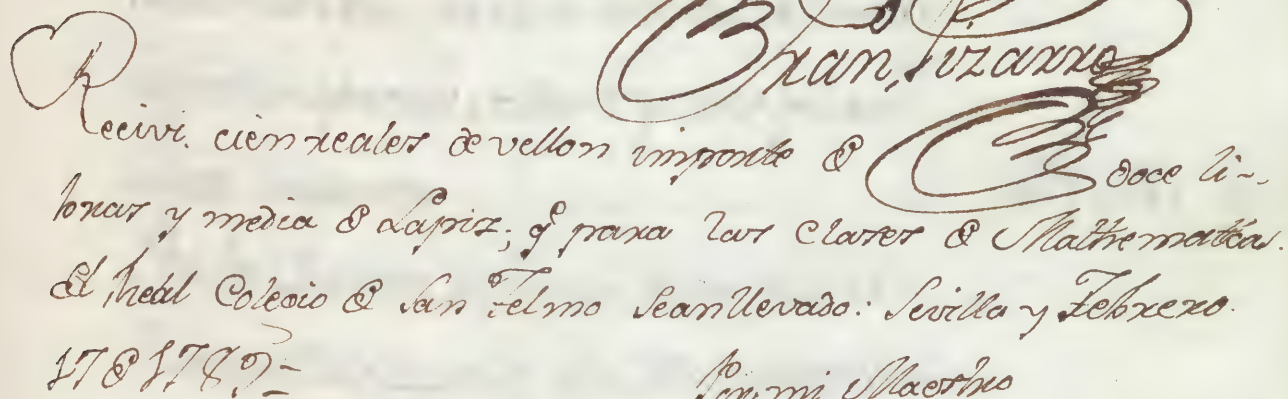 Fran, Pizarro
Recivi. cien reales de vellon importe de doce li-
bras y media de Lapiz; q para las Clases de Mathematica.
del Real Colegio de San Telmo seanllevado: Sevilla y Febrero.
17 de 1789=
Por mi Maestro